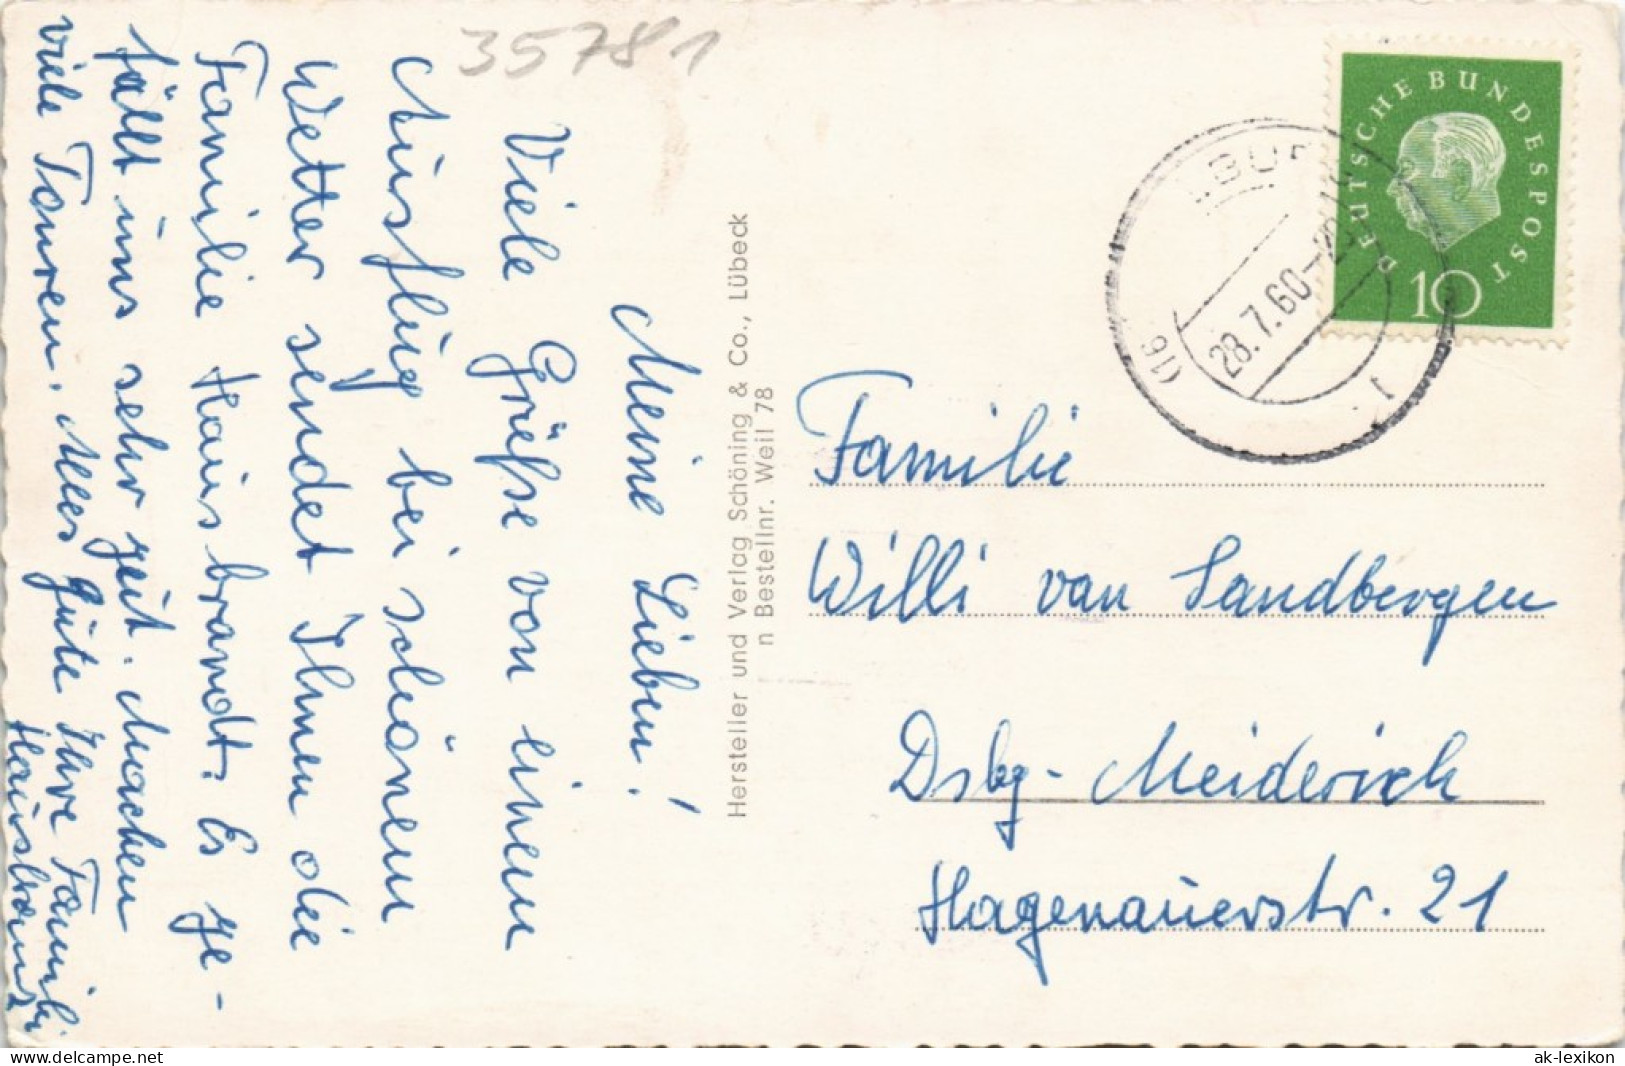 35781
Meine Lieben!
Viele Grüße von einem
Ausflug bei schönem
Wetter sendet Ihnen die
Familie Hausbrandt. Es ge-
fällt uns sehr gut. Machen
viele Touren. Alles Gute Ihre Familie
Hausbrandt
Hersteller und Verlag Schöning & Co., Lübeck
n Bestellnr. Weil 78
DEUTSCHE BUNDESPOST
10
(16
28.7.60
1
Familie
Willi van Sandbergen
Dsbg-Meiderich
Hagenauerstr. 21
www.delcampe.net
ak-lexikon